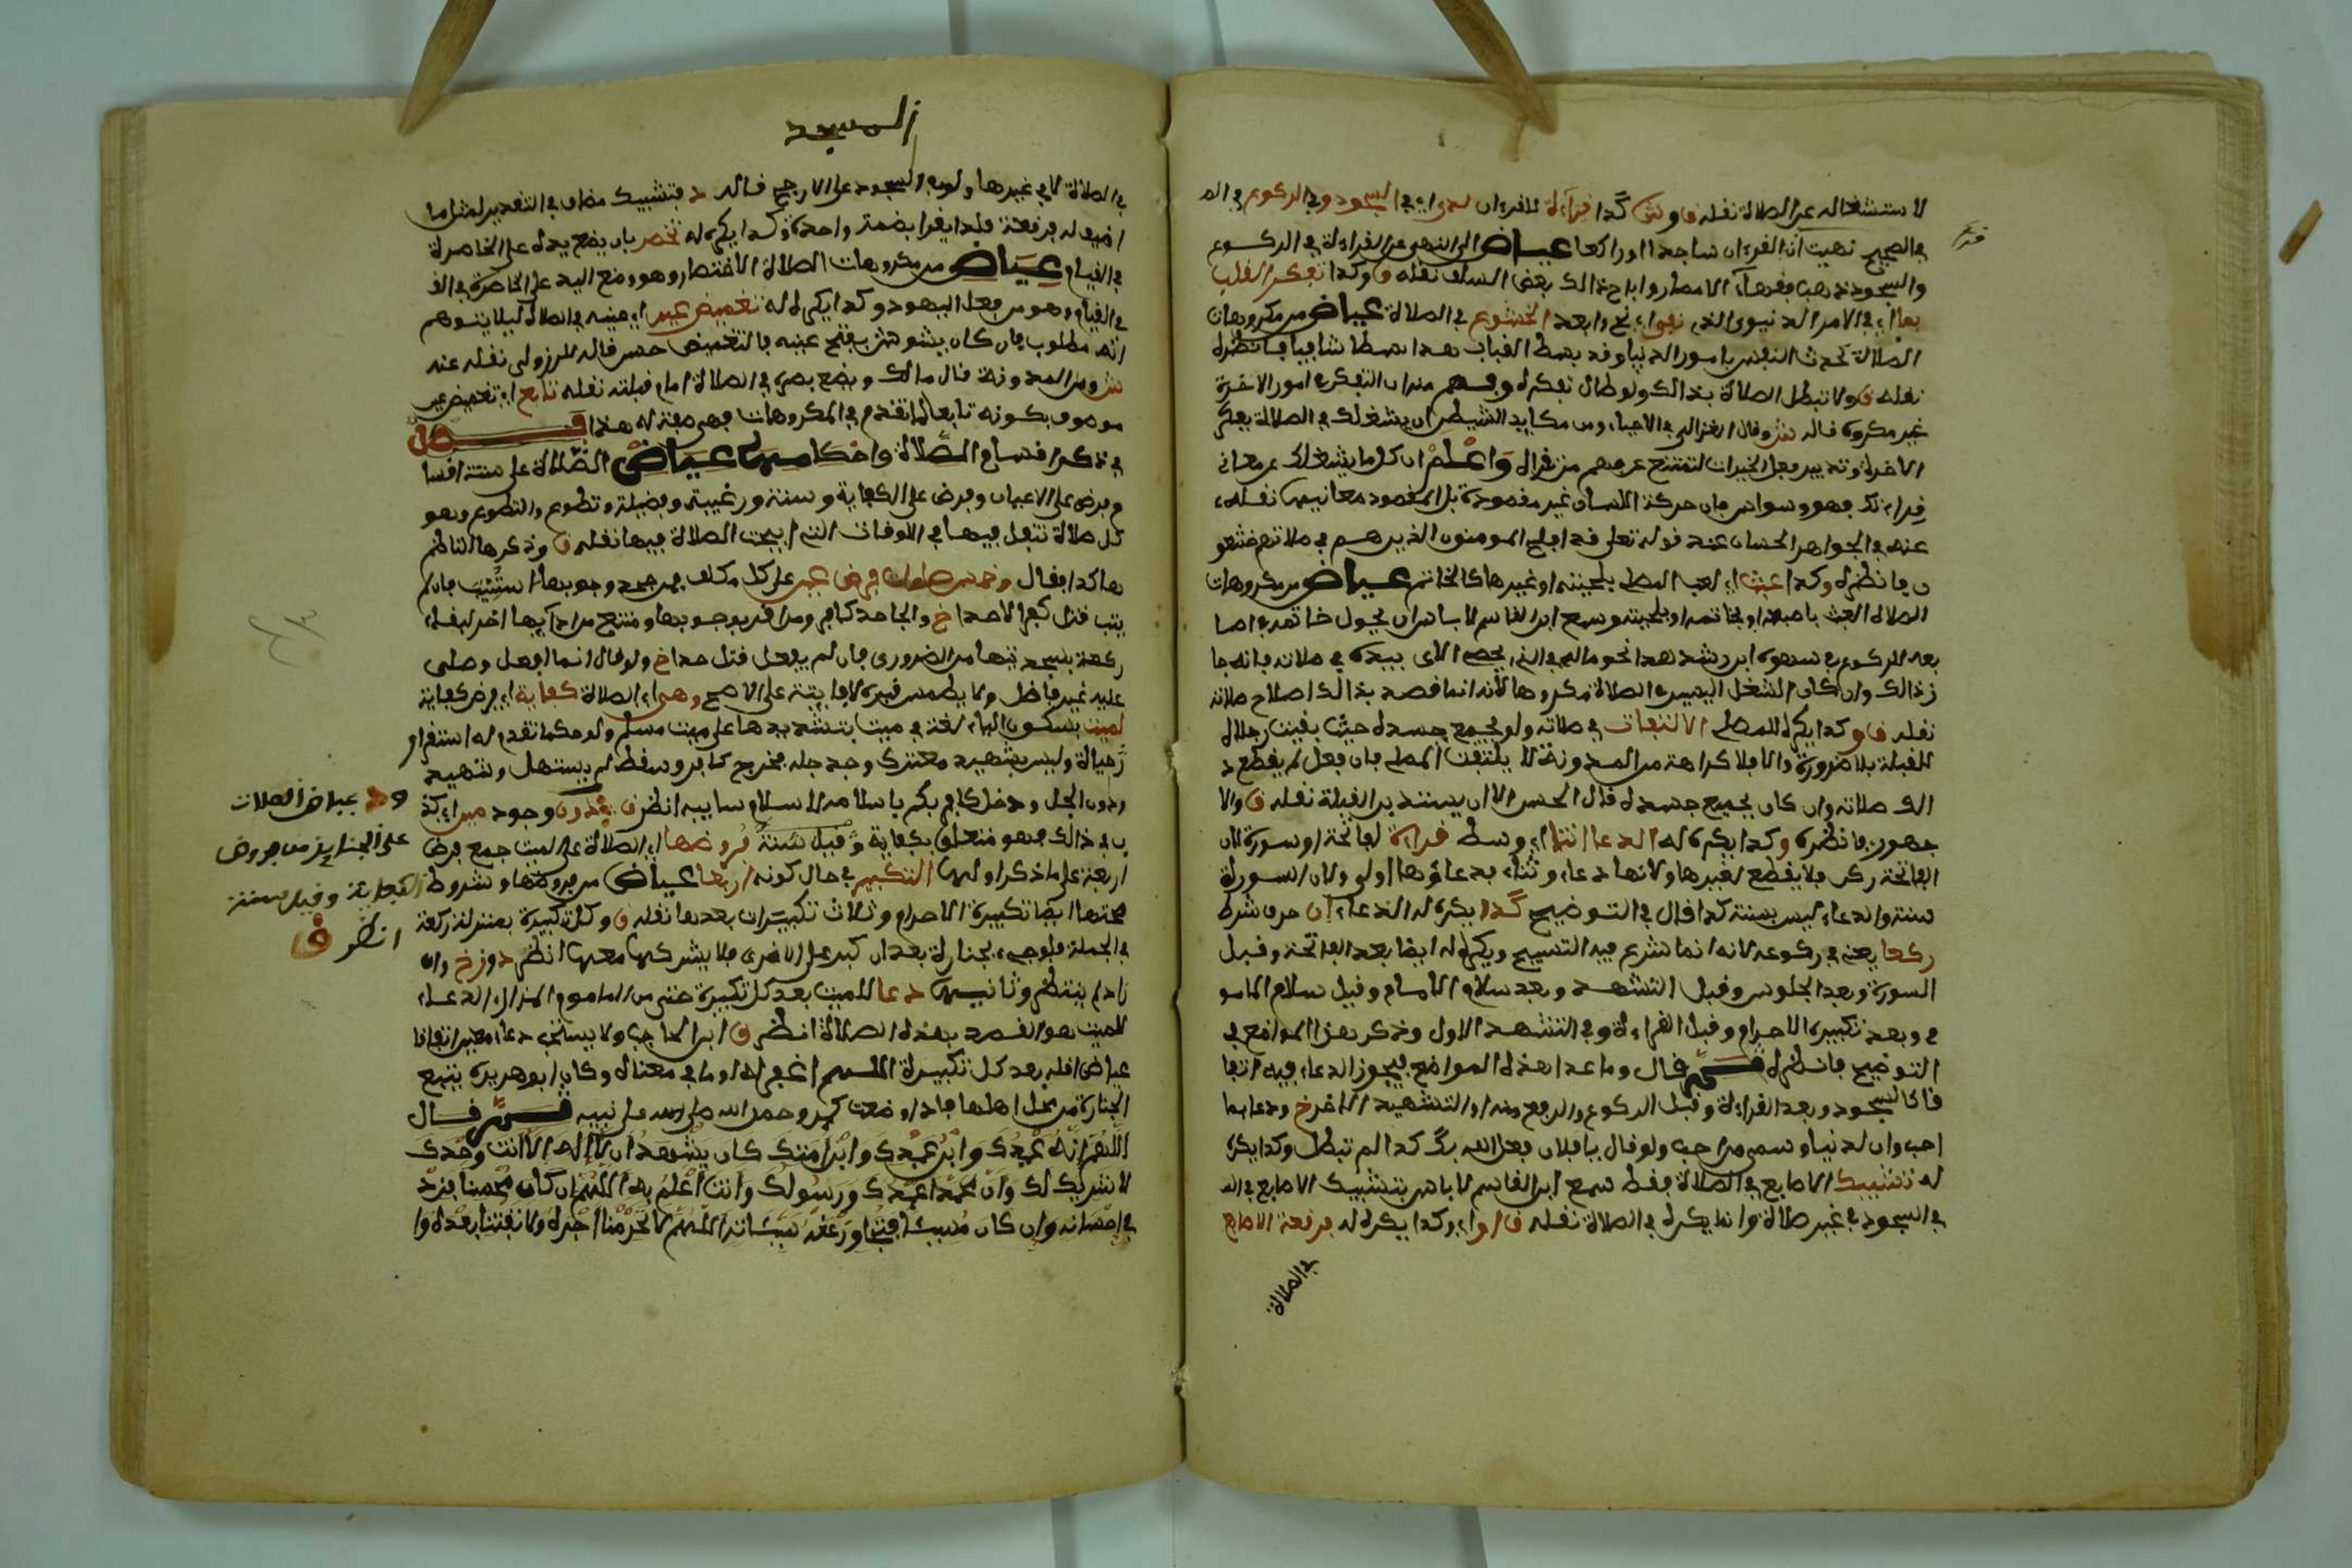 لاستشغاله عن الصلاة نقله ق وش كذا قراءة للقرءان لدى اي في السجود وفي الركوع في الصـ
في الصحيح نهيت ان اقرءان ساجدا او راكعا عياض الى النهي عن القراءة في الركوع
والسجود ذهب فقهاء الامصار واباح ذالك بعض السلف نقله ق وكذا تفكر القلب
بما اي في الامر الدنيوي الذي نفى اي نحى وابعد الخشوع في الصلاة عياض من مكروهات
الصلاة تحدث النفس بامور الدنيا وقد بسط القباب هذا بسطا شافيا فانظره
نقله ق ولا تبطل الصلاة بذالك ولو طال تفكره وفهم منه ان التفكر في امور الاخرة
غير مكروه قاله ش وقال الغزالي في الاحياء ومن مكايد الشيطن ان يشغلك في الصلاة بفكر
الاخرة وتدبير فعل الخيرات لتمتنع عن فهم من تقرأ واعلم ان كل ما يشغلك عن معاني
قراءتك فهو وسواس فان حركة اللسان غير مقصودة بل المقصود معانيها نقله
عنه في الجواهر الحسان عند قوله تعلى قد افلح المومنون الذين هم في صلاتهم خشعو
ن فانظره وكذا عبث اي لعب المصلي بلحيته او غيرها كالخاتم عياض من مكروهات
الصلاة العبث باصبعه او بخاتمه او بلحيته وسمع ابن القاسم لا باس ان يحول خاتمه في اصا
بعه للركوع في سهوه ابن رشد هذا نحو ماله في الذي يحصي الاي بيده في صلاته فانه جا
ز ذالك وان كان الشغل اليسير في الصلاة مكروها لانه انما قصد بذالك اصلاح صلاته
نقله ق وكذا يكره للمصلي الالتفات في صلاته ولو بجميع جسده حيث بقيت رجلاه
للقبلة بلا ضرورة والا فلا كراهة من المدونة لا يلتفت المصلي فان فعل لم يقطع ذ
الك صلاته وان كان بجميع جسده قال الحسن الا ان يستدبر القبلة نقله ق والا
جهور فانظره وكذا يكره له الدعا اثنا اي وسط قراءة لفاتحة او سورة لان
الفاتحة ركن فلا يقطع لغيرها ولانها دعاء وثناء فدعاؤها اولى ولان السورة
سنة والدعاء ليس بسنة كذا قال في التوضيح كذا يكره له الدعاء ان حرف شرط
ركعا يعني في ركوعه لانه انما شرع فيه التسبيح ويكره له ايضا بعد الفاتحة وقبل
السورة وبعد الجلوس وقبل التشهد وبعد سلام الامام وقبل سلام المامو
م وبعد تكبيرة الاحرام وقبل القراءة وفي التشهد الاول وذكر هذا المواضع في
التوضيح فانظره قال وما عدا هذه المواضع فيجوز الدعاء فيه اتفا
قا كالسجود وبعد القراءة وقبل الركوع والرفع منه والتشهيد الاخر خ ودعا بما
احب وان لدنيا وسمى من احب ولو قال يا فلان فعل الله بك كذا لم تبطل وكذا يكره
له تشبيك الاصابع في الصلاة فقط سمع ابن القاسم لا باس بتشبيك الاصابع في المـ
في السجود في غير صلاة وانما يكره في الصلاة نقله ق او اي وكذا يكره له فرقعة الاصابع
في الصلاة
المسجد
في الصلاة لا في غيرها ولو في السجود على الارجح قاله د فتشبيك مضاف في التقدير لمثل ما
اضيف له فرقعة فلذا يقرا بضمة واحدة وكذا يكره له تخصر بان يضع يده على الخاصرة
في القيام عياض من مكروهات الصلاة الاختصار وهو وضع اليد على الخاصرة في الـ
في القيام وهو من فعل اليهود وكذا يكره له تغميض عين اي عينيه في الصلاة ليلا يتوهم
انه مطلوب فان كان يشوش بفتح عينيه فالتغميض حسن قاله البرزولي نقله عنه
ش ومن المدونة قال مالك ويضع بصره في الصلاة امام قبلته نقله تابع اي تغميض عين
موصوف بكونه تابعا لما تقدم في المكروهات فهي صفة له هذا فصل
في ذكر اقسام الصلاة واحكامها عياض الصلاة على ستة اقسا
م فرض على الاعيان وفرض على الكفاية وسنة ورغيبة وفضيلة وتطوع والتطوع وهو
كل صلاة تنفل فيها في الاوقات التي ابيحت الصلاة فيها نقله ق وذكرها الناظم
هاكذا فقال وخمس صلوات فرض عين على كل مكلف فمن جحد وجوبها استتيب فان لم
يتب قتل كفرا لا حدا خ والجاحد كافر ومن اقر بوجوبها وامتنع من ادايها اخر لبقاء
ركعة بسجدتيها من الضروري فان لم يفعل قتل حدا خ ولو قال انا افعل وصلى
عليه غير فاضل ولا يطمس قبره لا فايتة على الاصح وهي اي الصلاة كفاية اي فرض كفاية
لميت بسكون الياء لغة في ميت بتشديدها على ميت مسلم ولو حكما تقدم له استقرار
حياة وليس بشهيد معترك وجد جله فخرج كافر وسقط لم يستهل وشهيد
ودون الجل ودخل كافر بكم باسلامه الاسلام سابيه انظر ق دون وجود من اي
ب في ذالك فهو متعلق بكفاية وقيل سنة فروضها اي الصلاة على الميت جمع فرض
اربعة على ما ذكر اولها التكبير في حال كونه اربعا عياض من فروضها وشروط
صحتها ايضا تكبيرة الاحرام وثلاث تكبيرات بعدها نقله ق وكل تكبيرة بمنزلة ركعة
في الجملة فلو جيء بجنازة بعد ان كبر على الاخرى فلا يشركها معها انظر د وز خ وان
زاد لم ينتظر وثانيها دعا للميت بعد كل تكبيرة حتى من الماموم المنزلة الدعاء
للميت هو القصد بهذه الصلاة انظر ق ابن الحاجب ولا يستحب دعاء معين اتفاقا
عياض اقله بعد كل تكبيرة اللهم اغفر له او ما في معناه وكان ابوهريرة يتبع
الجنازة من محل اهلها فاذا وضعت كبر وحمد الله وصلى على نبيه ثم قال
اللهم انه عبدك وابن عبدك وابن امتك كان يشهد ان لا اله الا انت وحدك
لا شريك لك وان محمدا عبدك ورسولك وانت اعلم به اللهم ان كان محسنا فزد
في احسانه وان كان مسيئا فتجاوز عن سيئاته اللهم لا تحرمنا اجره ولا تفتنا بعده وا
عياض الصلات
على الجنايز من فروض
الكفاية وقيل سنة
انظر ق